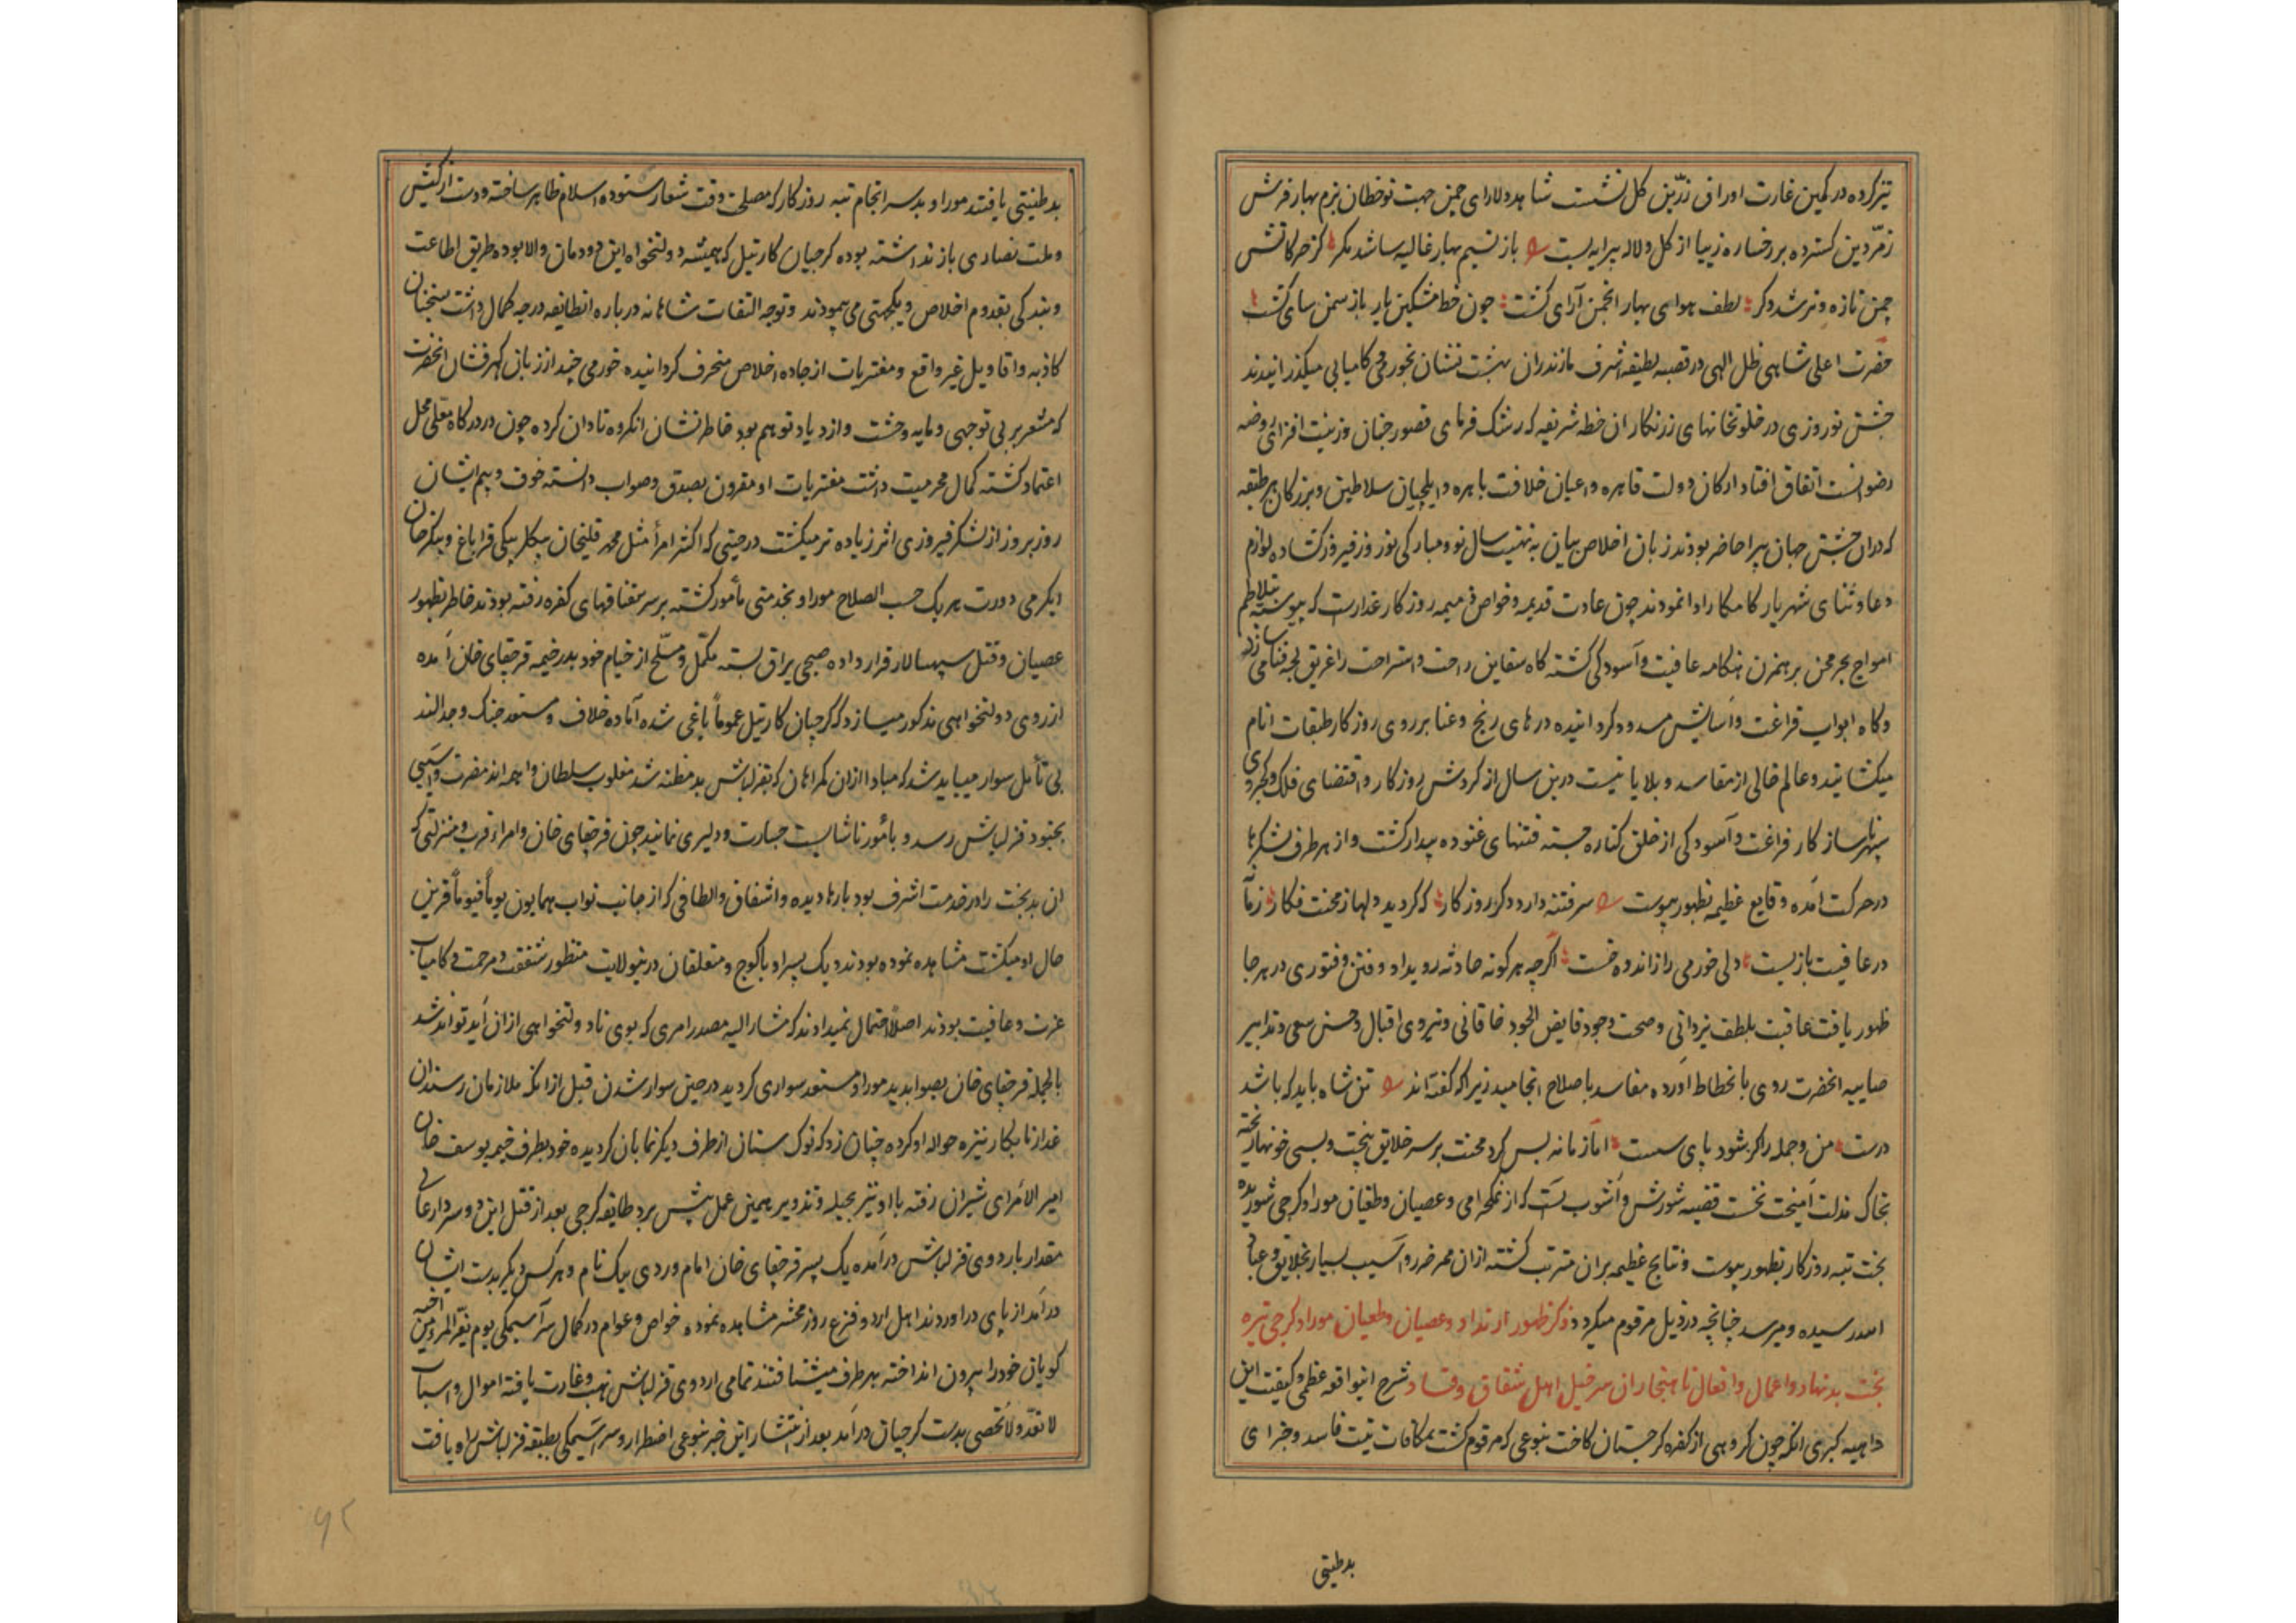 تیز کرده در کمین غارت اوراق زرین گل نشست شاهد دلارای چمن جهت نوخطان بزم بهار فرش
زمردین گسترده بر رخساره زیبا از گل و لاله پیرایه بست باز نسیم بهار غالیه سا شد مکر کز حرکاتش
چمن تازه و تر شد دکر لطف هوای بهار انجمن آرای کشت چون خط مشکین یار باز سمن سای کشت
حضرت اعلی شاهی ظل الهی در قصبه لطیفه اشرف مازندران بهشت نشان بخورمی و کامیابی میکذرانیدند
جشن نوروزی در خلوتخانهای زرنکار ان خطه شریفه که رشک فرمای قصور جنان و زینت افزای روضه
رضوانست اتفاق افتاد ارکان دولت قاهره و اعیان خلافت باهره و ایلچیان سلاطین و بزرکان هر طبقه
که دران جشن جهان پیرا حاضر بودند زبان اخلاص بیان به تهنیت سال نو و مبارکی نوروز فیروز کشاده لوازم
دعا و ثنای شهریار کامکار ادا نمودند چون عادت قدیمه و خواص ذمیمه روزکار غدارست که پیوسته بتلاطم
امواج بحر محن برهمزن هنکامه عافیت و آسودکی کشته کاه سفاین راحت و استراحت را غریق لجه فنا می سازد
و کاه ابواب فراغت و آسایش مسدود کردانیده درهای رنج و عنا بر روی روزکار طبقات انام
میکشایند و عالم خالی از مفاسد و بلایا نیست درین سال از کردش روزکار و اقتضای فلک کجروی
سپهر ناساز کار فراغت و آسودکی از خلق کناره جسته فتنهای غنوده بیدار کشت و از هر طرف لشکرها
در حرکت آمده وقایع عظیمه بظهور پیوست سر فتنه دارد دکر روزکار که کردید دلها ز محنت فکار زمانه
در عافیت باز بست دلی خورمی را ز اندوه خست اکرچه هر کونه حادثه رویداد و فتن و فتوری در هر جا
ظهور یافت عاقبت بلطف یزدانی و صحت وجود فایض الجود خاقانی و نیروی اقبال و حسن سعی و تدابیر
صایبه انحضرت روی بانحطاط آورده مفاسد باصلاح انجامید زیرا که کفته اند تن شاه باید که باشد
درست من و جمله را کر شود پای سست اما زمانه بس کرد محنت بر سر خلایق بیخت و بسی خونها ریخته
بخاک مذلت آمیخت نخست قضیه شورش و آشوب است که از نمکحرامی و عصیان و طغیان موراو کرجی شوریده
بخت تیره روزکار بظهور پیوست و نتایج عظیمه بران مترتب کشته ازان ممر ضرر و آسیب بسیار بخلایق و عباد
الله رسیده و میرسد چنانچه در ذیل مرقوم میکردد ذکر ظهور ارتداد و عصیان و طغیان موراو کرجی تیره
بخت بد نهاد و اعمال و افعال ناهنجار ان سر خیل اهل شقاق و فساد شرح این واقعه عظمی و کیفیت این
داهیه کبری انکه چون کروهی از کفره کرجستان کاخت بنوعی که مرقوم کشت بمکافات نیت فاسد و جزای
بدطینتی
بدطینتی یافتند موراو بد سرانجام تیره روزکار که مصلحت وقت شعار ستوده اسلام ظاهر ساخته و دست از کیش
و ملت نصاری باز نداشته بوده کرجیان کارتیل که همیشه دولتخواه این دودمان والا بوده طریق اطاعت
و بندکی بقدوم اخلاص و یکجهتی می پیمودند و توجه التفات شاهانه درباره انطایفه درجه کمال داشت بسخنان
کاذبه و اقاویل غیر واقع و مفتریات از جاده اخلاص منحرف کردانیده خورمی چند از زبان کهرفشان انحضرت
که مشعر بر بی توجهی و مایه وحشت و ازدیاد توهم بود خاطرنشان انکروه نادان کرده چون در درکاه معلی محل
اعتماد کشته کمال محرمیت داشت مفتریات او مقرون بصدق و صواب دانسته خوف و بیم ایشان
روز بروز از لشکر فیروزی اثر زیاده تر میکشت در حینی که اکثر امرا مثل محمد قلیخان بیکلربیکی قراباغ و پیکرخان
ایکرمی دورت هریک حسب الصلاح موراو بخدمتی مأمور کشته بر سر سقناقهای کفره رفته بودند خاطر بظهور
عصیان و قتل سپهسالار قرار داده صبحی یراق بسته مکمل و مسلح از خیام خود بدر خیمه قرچقای خان آمده
از روی دولتخواهی مذکور میسازد که کرجیان کارتیل عموماً یاغی شده آماده خلاف و مستعد جنک و جدالند
بی تأمل سوار میباید شد که مبادا ازان کمراهان که بقزلباش بد مظنه شد مغلوب سلطان واهمه اند مضرت و آسیبی
بجنود قزلباش رسد و بامور ناشایست جسارت و دلیری نمایند چون قرچقای خان و امراء قرب و منزلتی که
ان بدبخت را در خدمت اشرف بود بارها دیده و اشفاق و الطافی که از جانب نواب همایون یوماً فیوماً قرین
حال او میکشت مشاهده نموده بودند و یک پسر او با کوچ و متعلقان درینولایت منظور شفقت و مرحمت و کامیاب
عزت و عافیت بودند اصلا احتمال نمیدادند که مشارالیه مصدر امری که بوی نادولتخواهی ازان آید تواند شد
بالجمله قرچقای خان بصوابدید موراو مستعد سواری کردید در حین سوار شدن قبل از انکه ملازمان رسند ان
غدار نابکار نیزه حواله او کرده چنان زد که نوک سنان از طرف دیکر نمایان کردیده خود بطرف خیمه یوسف خان
امیر الامرای شیران رفته با او نیز بحیله و تزویر همین عمل پیش برد طایفه کرجی بعد از قتل این دو سردار عالی
مقدار باردوی قزلباش درآمده یک پسر قرچقای خان امام وردی بیک نام و هر کس دیکر بدست ایشان
درآمد از پای دراوردند اهل اردو فزع روز محشر مشاهده نموده خواص و عوام در کمال سرآسیمکی یوم یفر المرء من اخیه
کویان خود را بیرون انداخته بهر طرف میشتافتند تمامی اردوی قزلباش نهب و غارت یافته اموال و اسباب
لا تعد و لا تحصی بدست کرجیان درآمد بعد از انتشار این خبر بنوعی اضطرار و سرآسیمکی بطبقه قزلباش راه یافت
۹۲